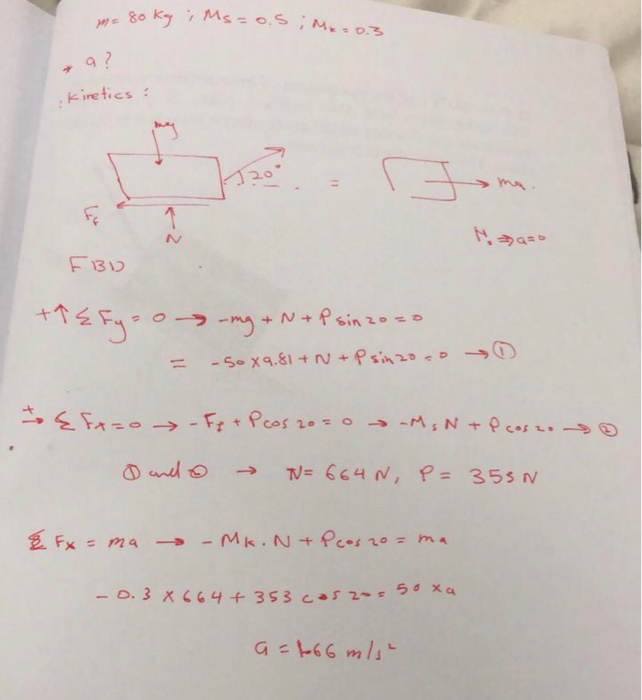 m = 80 kg ; Ms = 0.5 ; Mk = 0.3
* a ?
: kinetics :
mg
20°
= ma.
Ff
N
M. ⇒ a=0
FBD
+↑ ΣFy = 0 → -mg + N + P sin 20 = 0
= -50 x 9.81 + N + P sin 20 = 0 → ①
+→ ΣFx = 0 → -Ff + P cos 20 = 0 → -Ms N + P cos 20 → ②
① and ② → N = 664 N, P = 353 N
ΣFx = ma → - Mk . N + P cos 20 = ma
- 0.3 x 664 + 353 cos 20 = 50 x a
a = 1.66 m/s²